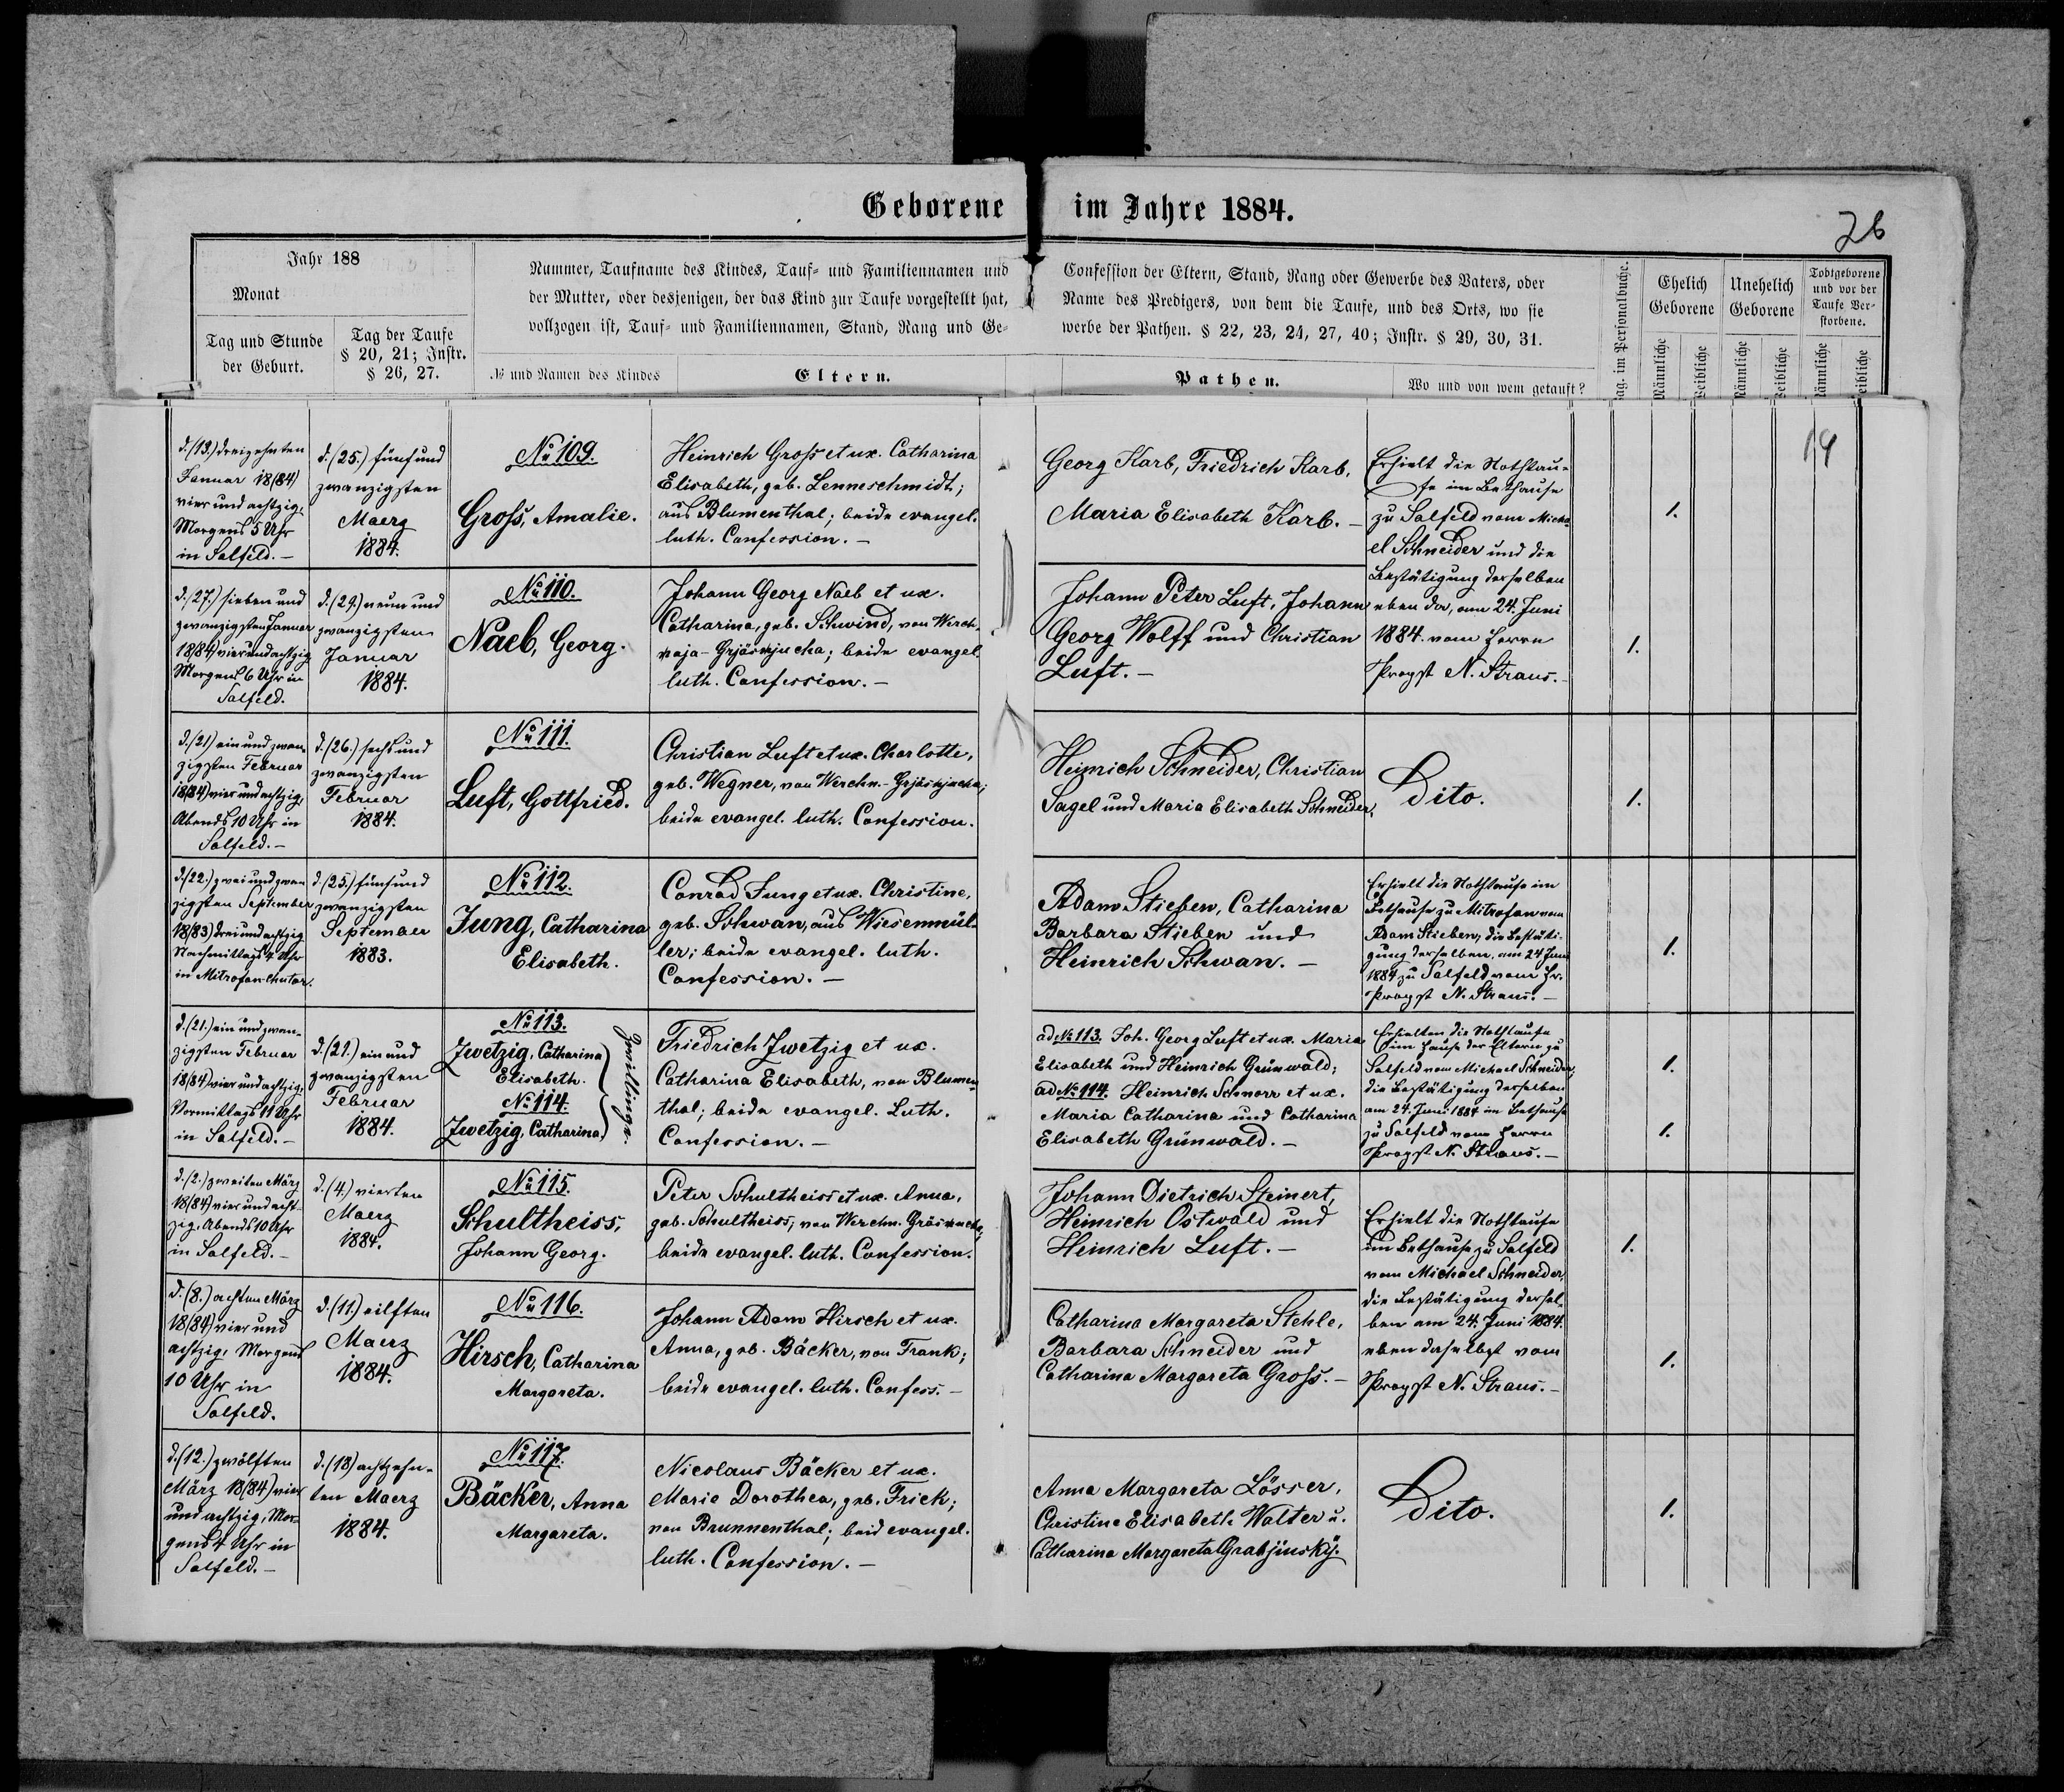 Geborene im Jahre 1884.
26
Jahr 188
Monat
Tag und Stunde
der Geburt.
Tag der Taufe
§ 20, 21; Instr.
§ 26, 27.
Nummer, Taufname des Kindes, Tauf- und Familiennamen und
der Mutter, oder desjenigen, der das Kind zur Taufe vorgestellt hat,
vollzogen ist, Tauf- und Familiennamen, Stand, Rang und Ge-
№ und Namen des Kindes
Eltern.
Confession der Eltern, Stand, Rang oder Gewerbe des Vaters, oder
Name des Predigers, von dem die Taufe, und des Orts, wo sie
werbe der Pathen. § 22, 23, 24, 27, 40; Instr. § 29, 30, 31.
Pathen.
Wo und von wem getauft?
Pag. im Personalbuche.
Ehelich
Geborene
Unehelich
Geborene
Todtgeborene
und vor der
Taufe Ver-
storbene.
Männliche
Weibliche
Männliche
Weibliche
Männliche
Weibliche
14
d. (13.) dreizehnten
Januar 18(84)
vier und achtzig,
Morgens 5 Uhr
in Salfeld. –
d. (25.) fünf und
zwanzigsten
Maerz
1884.
№ 109.
Groß, Amalie.
Heinrich Groß et ux. Catharina
Elisabeth, geb. Lenneschmidt;
aus Blumenthal; beide evangel.
luth. Confession. –
Georg Karb, Friedrich Karb,
Maria Elisabeth Karb. –
Erhielt die Nothtau-
fe im Bethause
zu Salfeld vom Micha-
el Schneider und die
Bestätigung derselben
eben da, am 24. Juni
1884 vom Herrn
Propst N. Straus. –
1.
d. (27.) sieben und
zwanzigsten Januar
18(84) vier und achtzig
Morgens 6 Uhr in
Salfeld.
d. (29.) neun und
zwanzigsten
Januar
1884.
№ 110.
Naeb, Georg.
Johann Georg Naeb et ux.
Catharina, geb. Schwind, von Werch-
naja-Grjäsnjucha; beide evangel.
luth. Confession. –
Johann Peter Luft, Johann
Georg Wolff und Christian
Luft. –
1.
d. (21) ein und zwan-
zigsten Februar
18(84) vier und achtzig,
Abends 10 Uhr in
Salfeld. –
d. (26.) sechs und
zwanzigsten
Februar
1884.
№ 111.
Luft, Gottfried.
Christian Luft et ux. Charlotte,
geb. Wegner, von Werchn.-Grjäsnjucha;
beide evangel. luth. Confession.
Heinrich Schneider, Christian
Sagel und Maria Elisabeth Schneider,
Dito.
1.
d. (22.) zwei und zwan
zigsten September
18(83) drei und achtzig
Nachmittags 4 Uhr
in Mitrofan-Chutor.
d. (25.) fünf und
zwanzigsten
September
1883.
№ 112.
Jung, Catharina
Elisabeth.
Conrad Jung et ux. Christine,
geb. Schwan, aus Wiesenmül-
ler; beide evangel. luth.
Confession. –
Adam Stieben, Catharina
Barbara Stieben und
Heinrich Schwan. –
Erhielt die Nothtaufe im
Bethause zu Mitrofan vom
Adam Stieben, die Bestäti-
gung derselben, am 24 Juni
1884 zu Salfeld vom Hr.
Propst N. Straus. –
1.
d. (21.) ein und zwan-
zigsten Februar
18(84) vier und achtzig,
Vormittags 11 Uhr
in Salfeld. –
d. (21.) ein und
zwanzigsten
Februar
1884.
№ 113.
Zwetzig, Catharina
Elisabeth.
№ 114.
Zwetzig, Catharina.
Zwillinge.
Friedrich Zwetzig et ux.
Catharina Elisabeth, von Blumen-
thal; beide evangel. Luth.
Confession. –
ad № 113. Joh. Georg Luft et ux. Maria
Elisabeth und Heinrich Grünwald;
ad № 114. Heinrich Schnorr et ux.
Maria Catharina und Catharina
Elisabeth Grünwald. –
Erhielten die Nothtaufe
im Hause der Eltern zu
Salfeld vom Michael Schneider,
die Bestätigung derselben
am 24. Juni 1884 im Bethause
zu Salfeld vom Herrn
Propst N. Straus. –
1.
1.
d. (2.) zweiten März
18(84) vier und acht-
zig, Abends 10 Uhr
in Salfeld. –
d. (4.) vierten
Maerz
1884.
№ 115.
Schultheiss,
Johann Georg.
Peter Schultheiss et ux. Anna,
geb. Schultheiss, von Werchn. Gräsnucha;
beide evangel. luth. Confession.
Johann Dietrich Steinert,
Heinrich Ostwald und
Heinrich Luft. –
Erhielt die Nothtaufe
im Bethause zu Salfeld
vom Michael Schneider,
die Bestätigung dersel-
ben am 24. Juni 1884.
eben daselbst vom
Propst N. Straus. –
1.
d. (8.) achten März
18(84) vier und
achtzig, Morgens
10 Uhr in
Salfeld.
d. (11.) eilften
Maerz
1884.
№ 116.
Hirsch, Catharina
Margareta.
Johann Adam Hirsch et ux.
Anna, geb. Bäcker, von Frank;
beide evangel. luth. Confess. –
Catharina Margareta Stehle,
Barbara Schneider und
Catharina Margareta Groß. –
1.
d. (12.) zwölften
März 18(84) vier
und achtzig, Mor-
gens 4 Uhr in
Salfeld. –
d. (18) achtzehn-
ten Maerz
1884.
№ 117.
Bäcker, Anna
Margareta.
Nicolaus Bäcker et ux.
Marie Dorothea, geb. Frick;
von Brunnenthal; beid evangel.
luth. Confession. –
Anna Margareta Lösser,
Christine Elisabeth Walter u.
Catharina Margareta Grabjinsky.
Dito.
1.